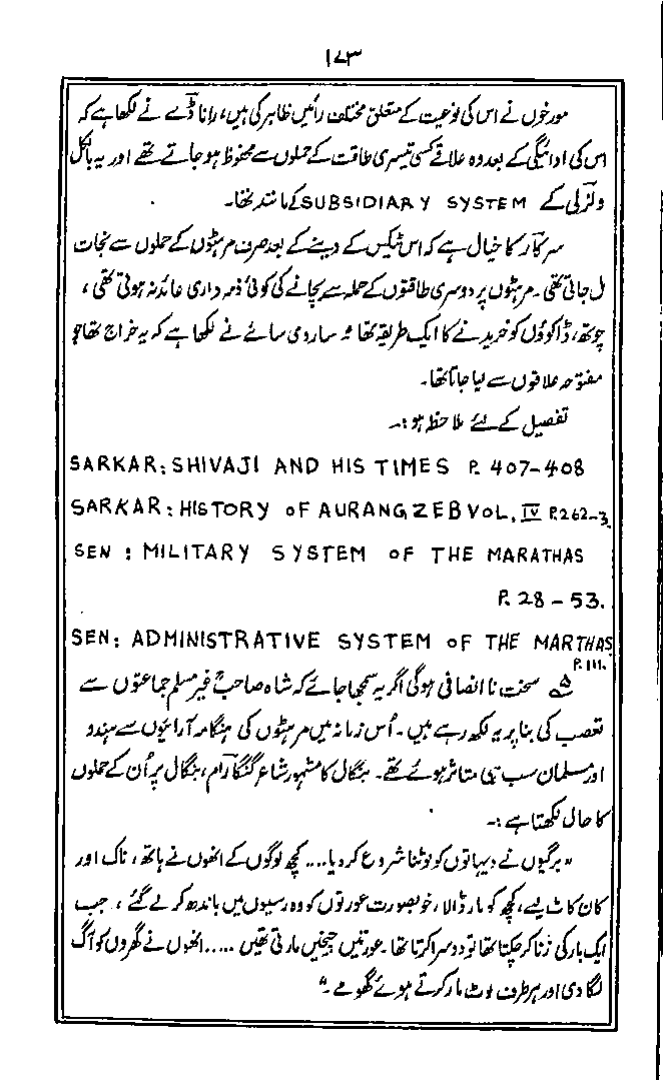 ۱۷۳
مورخوں نے اس کی نوعیت کے متعلق مختلف رائیں ظاہر کی ہیں، رانا ڈے نے لکھا ہے کہ
اس کی ادائیگی کے بعد وہ علاقے کسی تیسری طاقت کے حملوں سے محفوظ ہو جاتے تھے اور یہ بالکل
ولزلی کے SUBSIDIARY SYSTEM کے مانند تھا۔
سرکار کا خیال ہے کہ اس ٹیکس کے دینے کے بعد صرف مرہٹوں کے حملوں سے نجات
مل جاتی تھی۔ مرہٹوں پر دوسری طاقتوں کے حملہ سے بچانے کی کوئی ذمہ داری عائد نہ ہوتی تھی،
چوتھ، ڈاکوؤں کو خریدنے کا ایک طریقہ تھا سار دی سائے نے لکھا ہے کہ یہ خراج تھا جو
مفتوحہ علاقوں سے لیا جاتا تھا۔
تفصیل کے لئے ملاحظہ ہو:۔
SARKAR: SHIVAJI AND HIS TIMES P. 407-408
SARKAR: HISTORY OF AURANGZEB VOL. IV P.262-3
SEN : MILITARY SYSTEM OF THE MARATHAS
P. 28 - 53.
SEN: ADMINISTRATIVE SYSTEM OF THE MARTHAS
P.111.
۵ سخت نا انصافی ہوگی اگر یہ سمجھا جائے کہ شاہ صاحبؒ غیر مسلم جماعتوں سے
تعصب کی بنا پر یہ لکھ رہے ہیں۔ اُس زمانہ میں مرہٹوں کی ہنگامہ آرائیوں سے ہندو
اور مسلمان سب ہی متاثر ہوئے تھے۔ بنگال کا مشہور شاعر گنگا رام، بنگال پر اُن کے حملوں
کا حال لکھتا ہے:۔
"برگیوں نے دیہاتوں کو لوٹنا شروع کر دیا.... کچھ لوگوں کے انھوں نے ہاتھ، ناک اور
کان کاٹ لیے، کچھ کو مار ڈالا، خوبصورت عورتوں کو وہ رسیوں میں باندھ کر لے گئے، جب
ایک بارگی زنا کر چکتا تھا تو دوسرا کرتا تھا۔ عورتیں چیخیں مارتی تھیں ..... انھوں نے گھروں کو آگ
لگا دی اور ہر طرف لوٹ مار کرتے ہوئے گھومے۔"